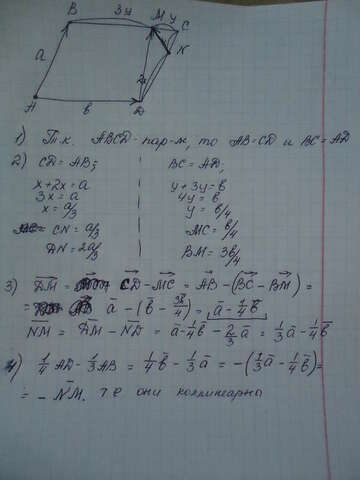 B 3y M y C
a 2x x N
A b D
1) Т.к. ABCD-пар-м, то AB=CD и BC=AD
2) CD=AB; BC=AD,
x+2x=a y+3y=b
3x=a 4y=b
x=a/3 y=b/4
CN=a/3 MC=b/4
DN=2a/3 BM=3b/4
3) DM = CD-MC = AB-(BC-BM) =
= a-(b-3b/4)= a-1/4b
NM = DM-ND = a-1/4b-2/3a = 1/3a-1/4b
4) 1/4AD-1/3AB = 1/4b-1/3a = -(1/3a-1/4b)=
= -NM. т.е они коллинеарны